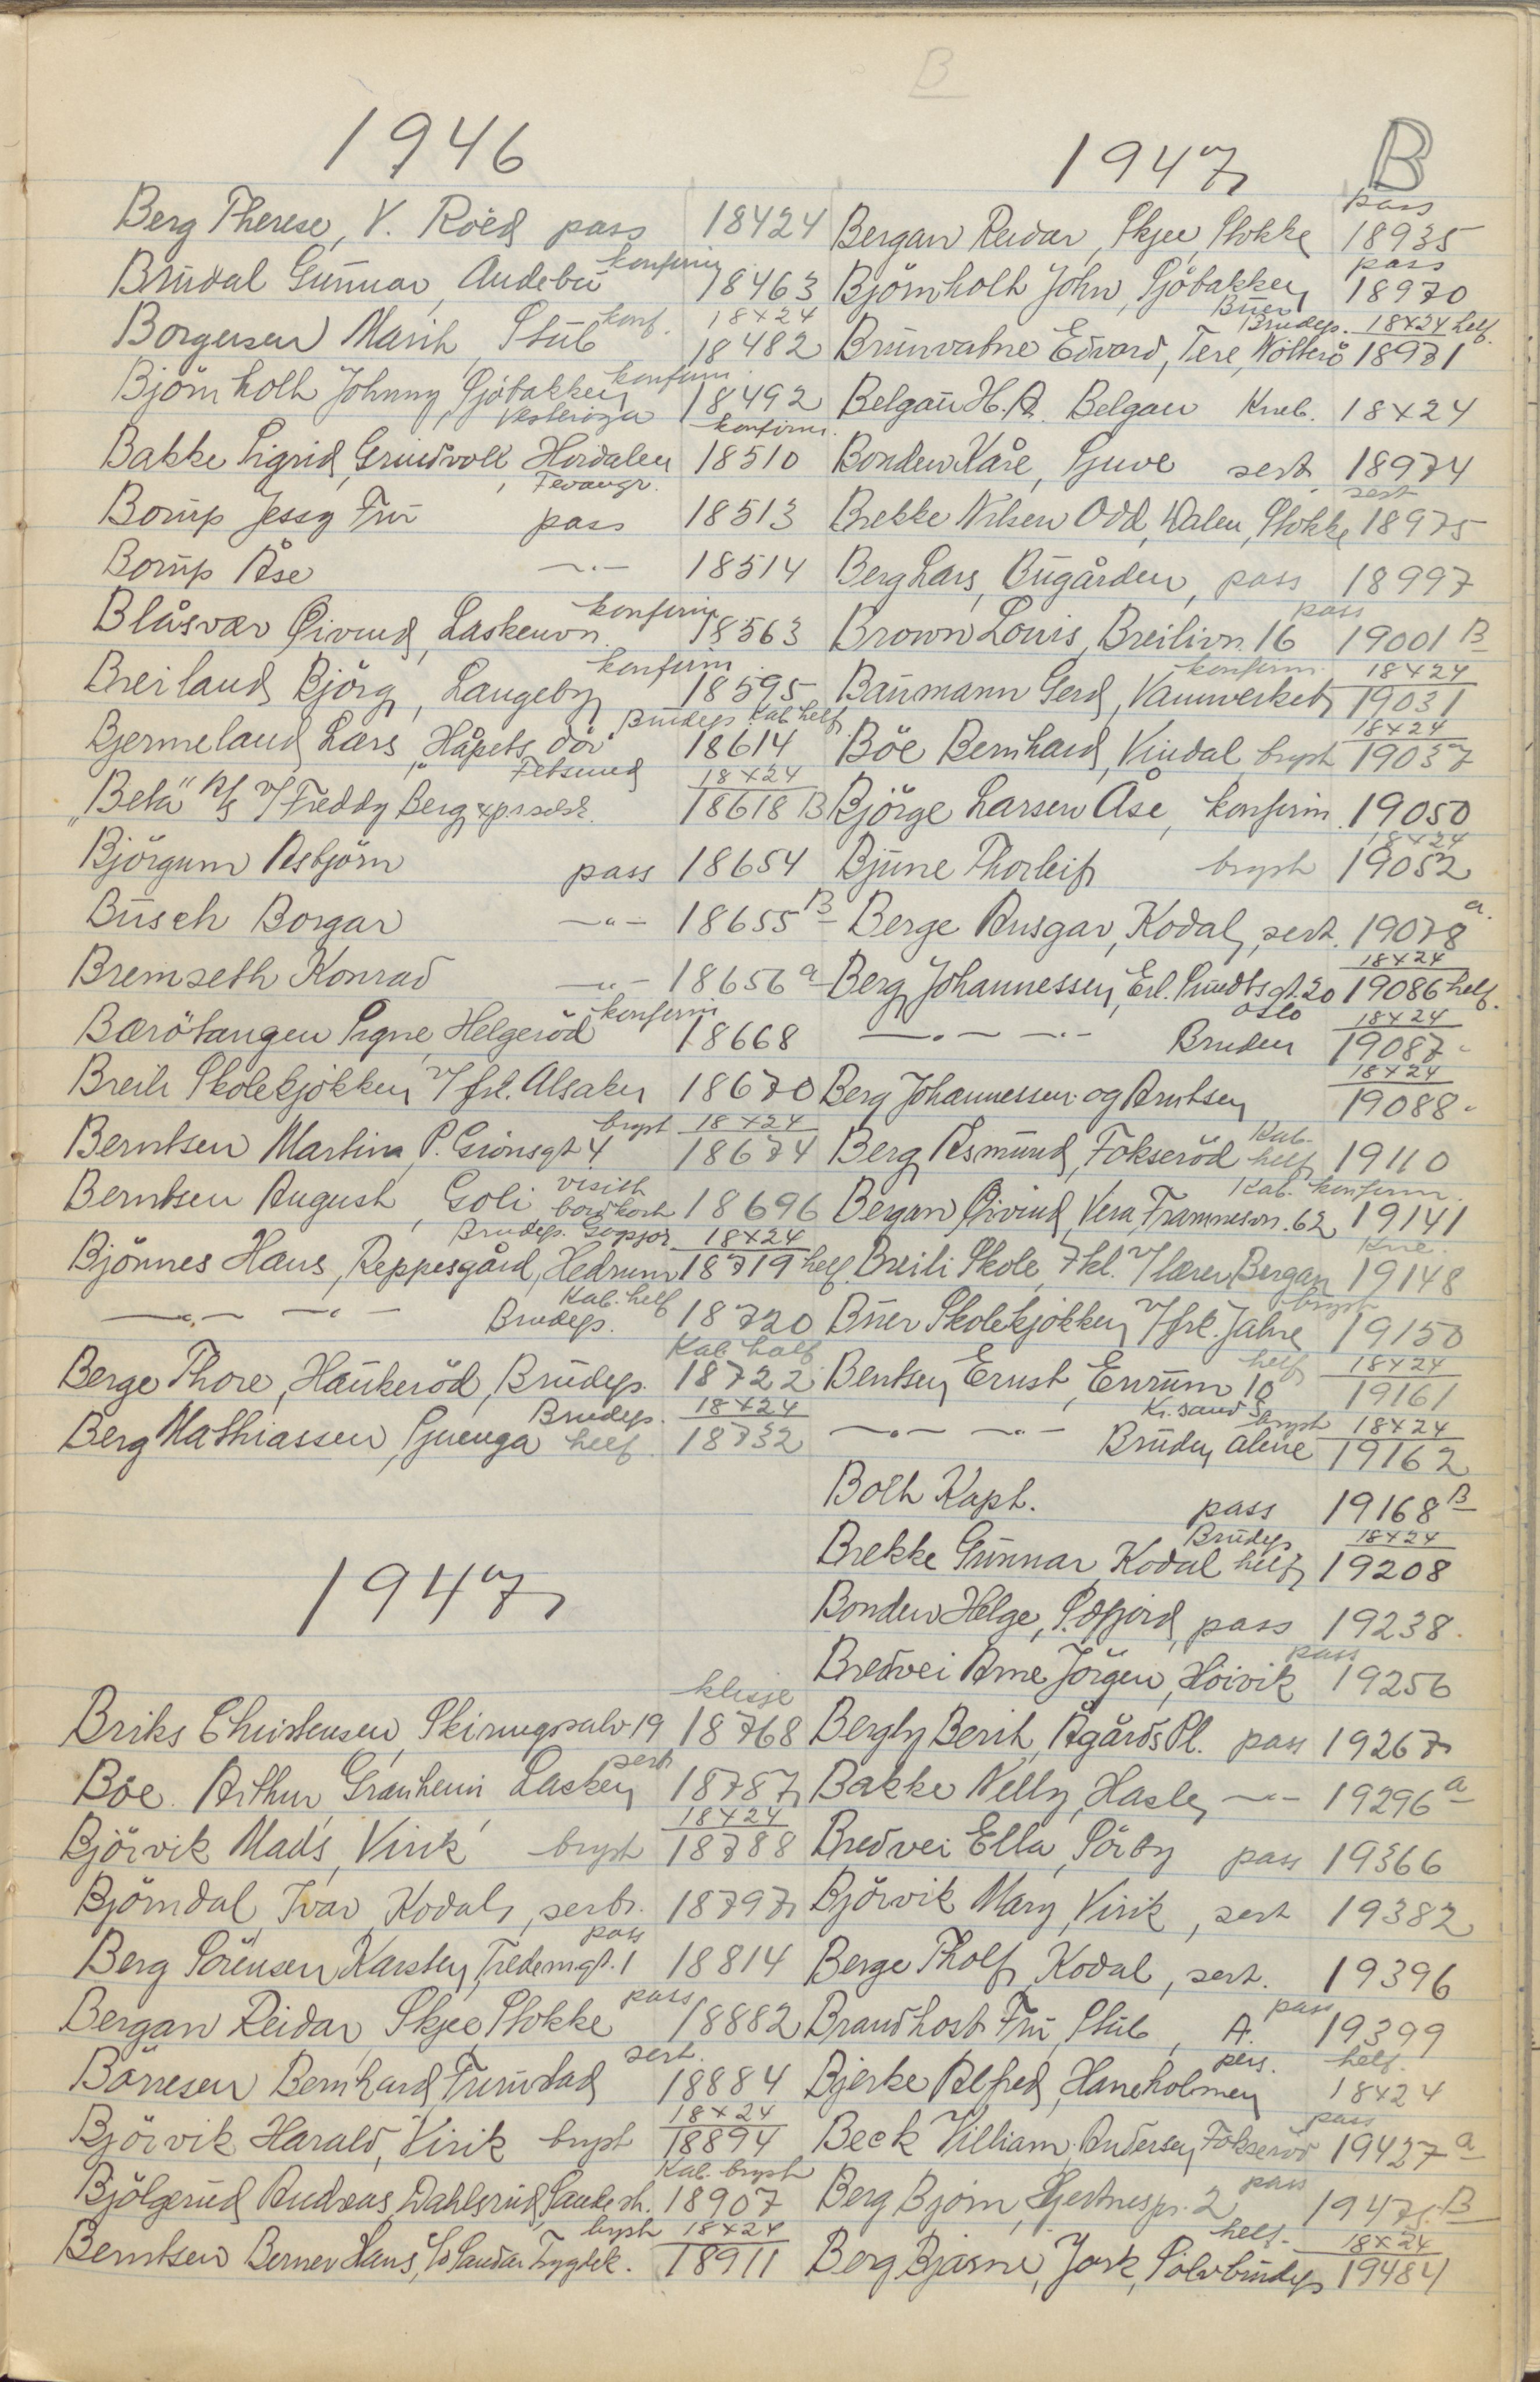 B
1946
Berg Therese, V. Röed pass 18424
Brudal Gunnar, Andebu konfirm 18463
Borgersen Marit, Stub konf. 18x24 18482
Björnholt Johnny, Sjöbakken Vesteröya konfirm. 18492
Bakke Sigrid, Grindvoll, Hordalen Tevangr. konfirm. 18510
Borup Jessy Fru pass 18513
Borup Åse —"— 18514
Blåsvær Öivind, Laskenvn. konfirm 18563
Breiland Björg, Langeby konfirm 18595
Bjermeland Lars, "Håpets dör" Fetsund Brudep. Kab. helf 18614
"Beta" A/S v/ Freddy Berg 18x24 18618 B
Björgum Asbjörn pass 18654
Busch Borgar —"— 18655 B
Bremseth Konrad —"— 18656 a
Bærötangen Signe, Helgeröd konfirm 18668
Breili Skolekjökken v/ frk. Alsaker 18670
Berntsen Martina, P. Grönsgt 4 bryst 18x24 18674
Berntsen August, Goli visitt 18696
Bjönnes Hans, Reppesgård, Hedrum Brudep. 18x24 18719 helf.
—"— —"— Brudep. Kab. helf 18720
Berge Thore, Haukeröd, Brudep. Kab half 18722
Berg Mathiassen, Gjuenga Brudep. helf 18x24 18732
1947
Briks Christensen, Skiringssalv 19 klisje 18768
Böe Arthur, Granheim Lasken sert 18787
Björvik Mads, Virik bryst 18x24 18788
Björndal Ivar, Kodal, sert. 18797
Berg Sörensen Karsten, Tredemgt. 1 pass 18814
Bergan Reidar, Skjee Stokke pass 18882
Börresen Bernhard, Furustad sert. 18884
Björvik Harald, Virik bryst 18x24 18894
Bjölgerud Andreas, Dahlsrud, Sande st. Kab. bryst 18907
Berntsen Berner Hans, bryst 18x24 18911
1947 B
Bergan Reidar, Skjee, Stokke pass 18935
Björnholt John, Sjöbakken pass 18970
Brunvatne Edvard, Tere, Nötterö Buer Brudep. 18x24 helf. 18971
Belgau H. A. Belgau Kneb. 18x24
Bonden Kåre, Gjuve sert 18974
Brekke Nilsen Odd, Dalen, Stokke sert 18975
Berg Lars, Bugården, pass 18997
Brown Louis, Breilivn. 16 pass 19001 B
Baumann Gerd, Vannverket konfirm. 18x24 19031
Böe Bernhard, Vindal bryst 18x24 19037
Björge Larsen Åse, konfirm. 19050
Bjune Thorleif bryst 18x24 19052
Berge Ansgar, Kodal, sert. 19078 a.
Berg Johannessen, Erl. Smedtsgt. 20 Oslo 18x24 19086 helf.
—"— —"— Bruden 18x24 19087 "
Berg Johannessen og Arntsen 18x24 19088 "
Berg Asmund, Fokseröd Kab. helf 19110
Bergan Öivind, Vera, Framnesvn. 62 Kab. konfirm. 19141
Breili Skole, 7 kl. v/ lærer Bergan Kne. 19148
Buer Skolekjökken v/ frk. Jahre bryst 19150
Bentsen Ernst, Enrum 10 Kr. sand S helf 18x24 19161
—"— —"— Bruden alene bryst 18x24 19162
Both Kapt. pass 19168 B
Brekke Gunnar, Kodal Brudep helf 18x24 19208
Bonden Helge, S.dfjord, pass 19238.
Bredvei Arne Jörgen, Höivik pass 19256
Bergby Berit, Ågårds Pl. pass 19267
Bakke Nelly, Hasle, —"— 19296 a
Bredvei Ella, Sörby pass 19366
Björvik Mary, Virik, sert 19382
Berge Tholf, Kodal, sert. 19396
Brandhost Fru, Stub, A. pass 19399
Bjerke Alfred, Haneholmen pers. helf. 18x24
Beck William Andersen, Fokseröd pass 19427 a
Berg Björn, Hjertnespr. 2 pass 19475 B
Berg Bjarne, Jork, Sölvbrudep helf. 18x24 19484